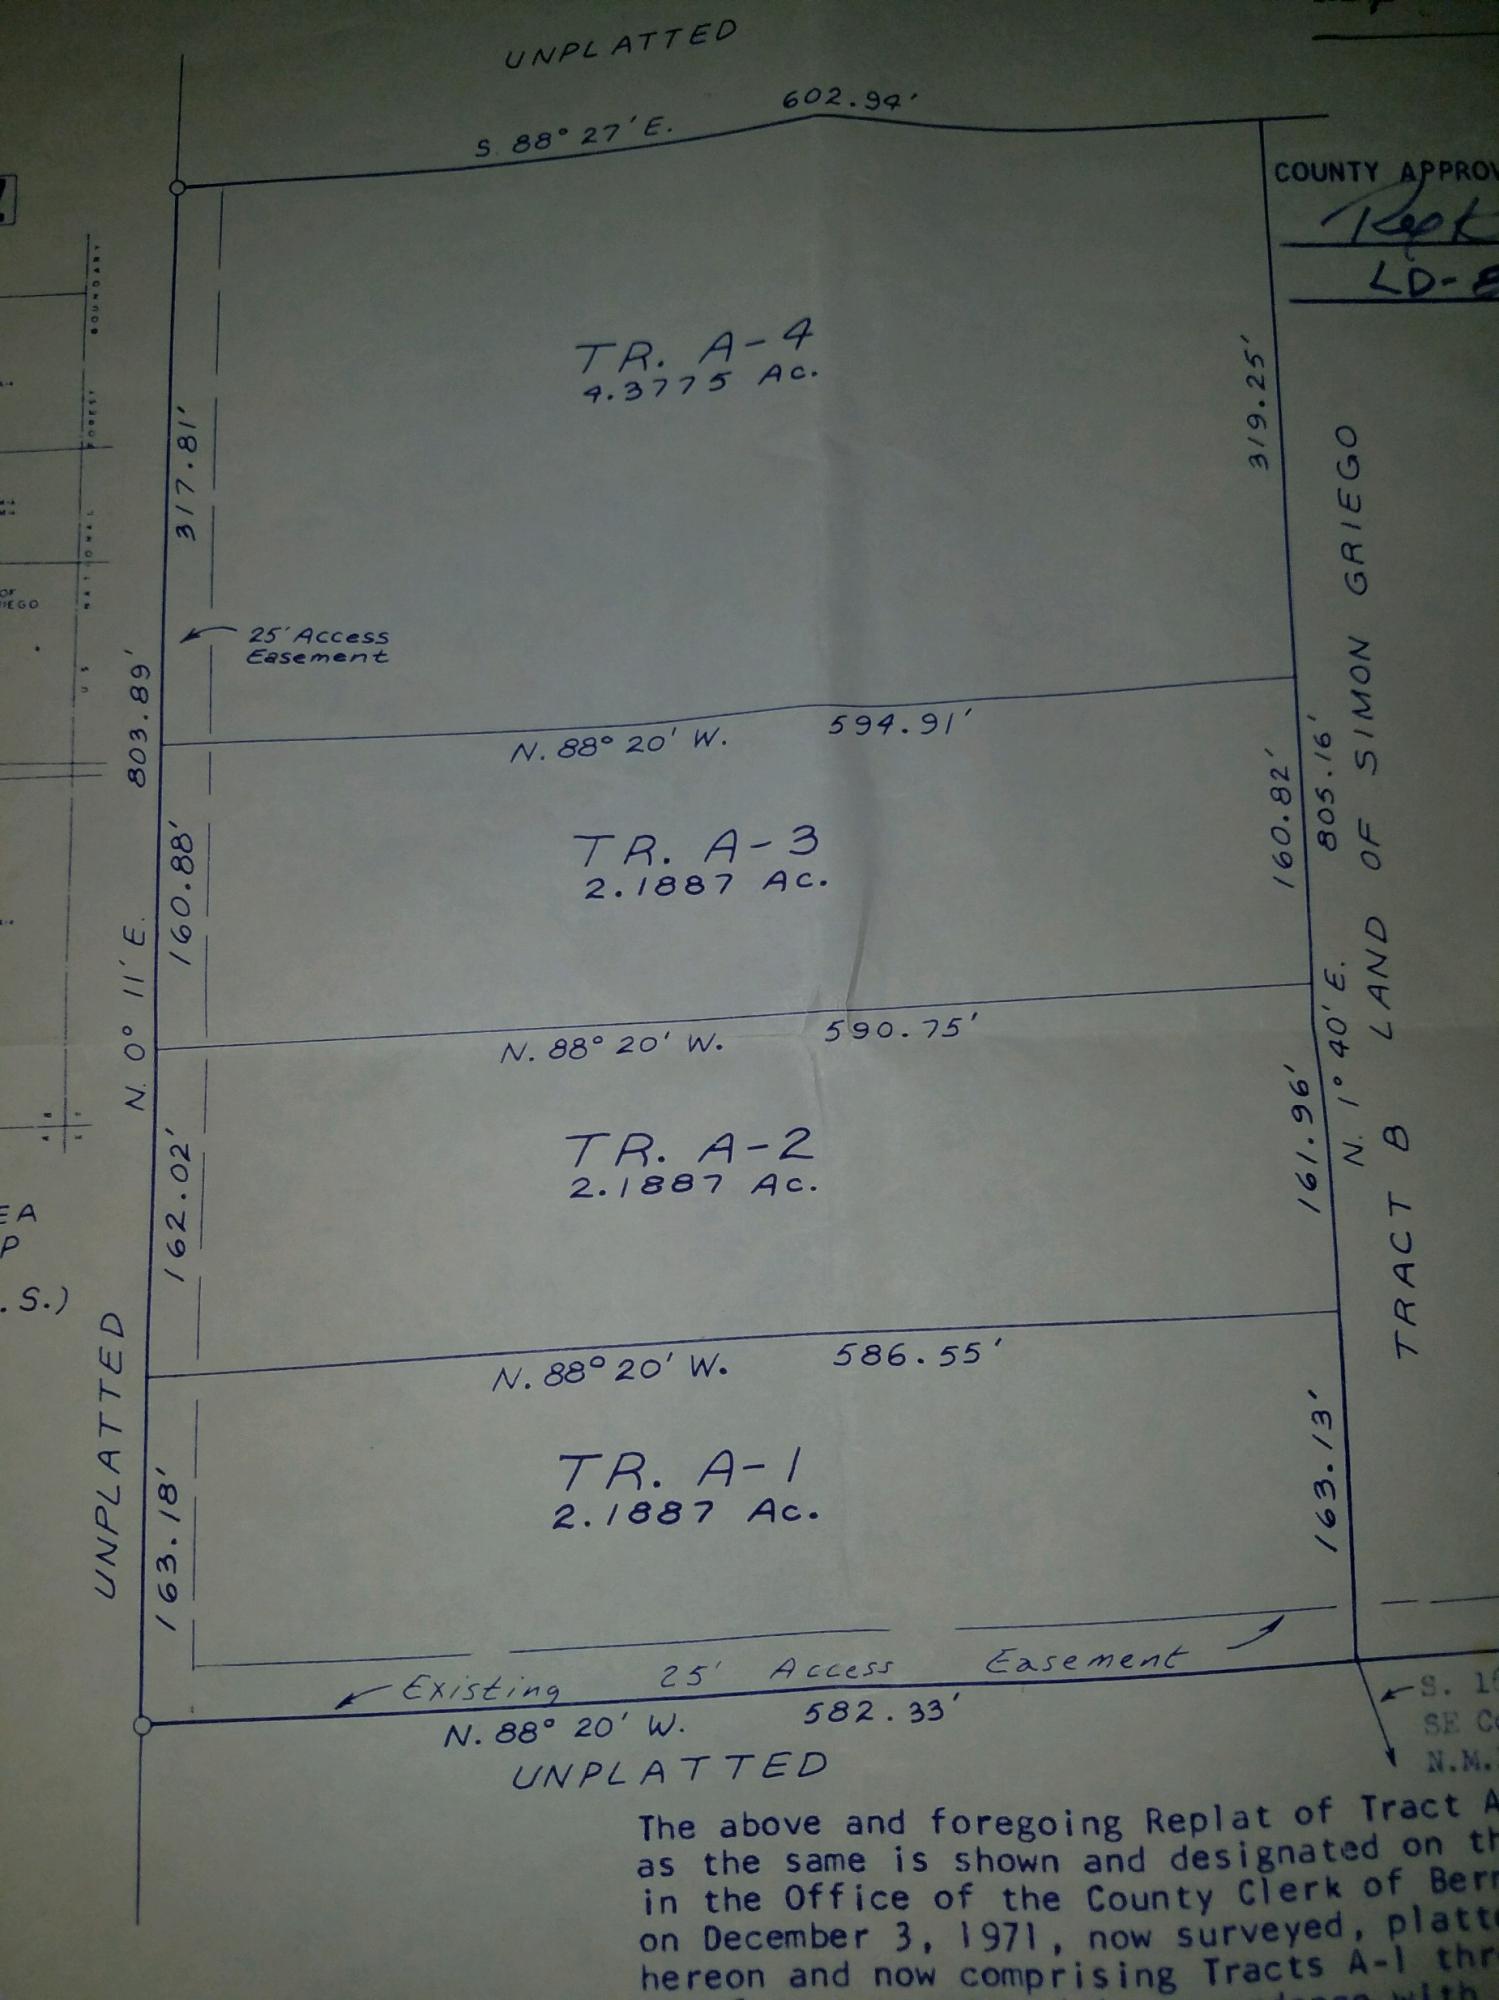 UNPLATTED
602.94'
S. 88° 27' E.
COUNTY APPROV
LD-8
BOUNDARY
FOREST
NATIONAL
U S
TR. A-4
4.3775 Ac.
317.81'
319.25'
25' Access
Easement
803.89'
N. 88° 20' W. 594.91'
TR. A-3
2.1887 Ac.
160.88'
160.82'
805.16'
N. 0° 11' E.
N. 1° 40' E.
TRACT B LAND OF SIMON GRIEGO
N. 88° 20' W. 590.75'
TR. A-2
2.1887 Ac.
162.02'
161.96'
EA
P
. S.)
N. 88° 20' W. 586.55'
UNPLATTED
TR. A-1
2.1887 Ac.
163.18'
163.13'
Existing 25' Access Easement
N. 88° 20' W. 582.33'
UNPLATTED
SE Co
N.M.
The above and foregoing Replat of Tract A
as the same is shown and designated on th
in the Office of the County Clerk of Bern
on December 3, 1971, now surveyed, platte
hereon and now comprising Tracts A-1 thr
with